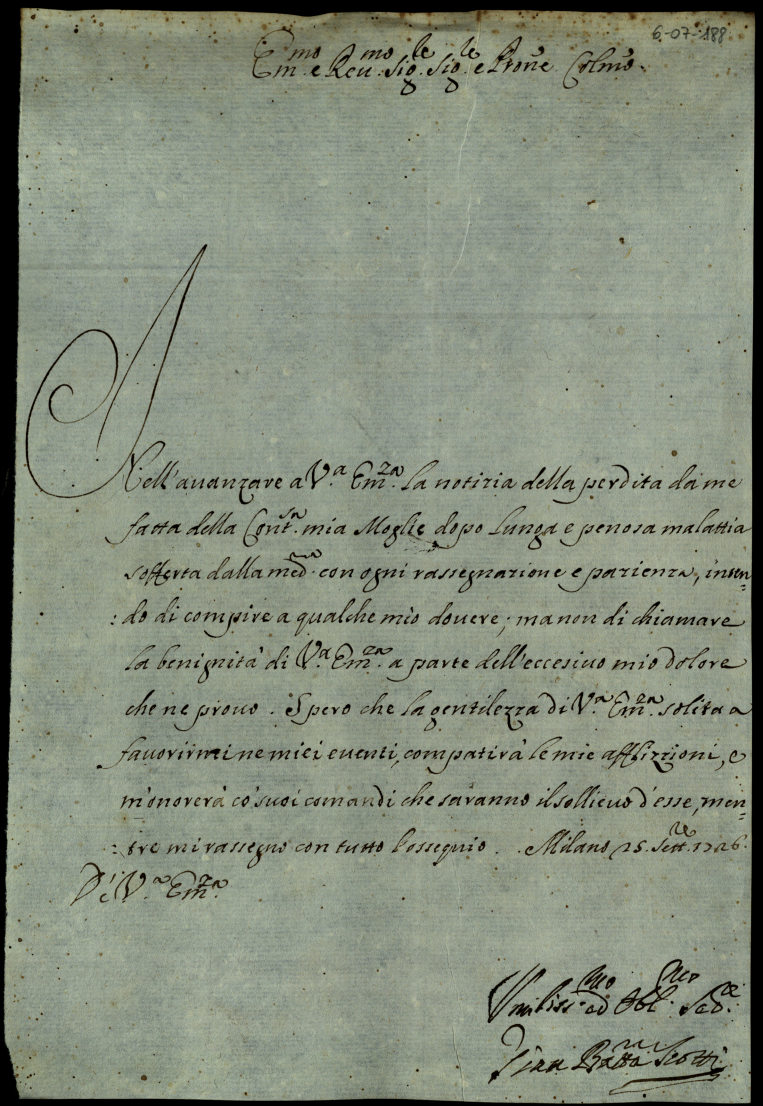 6-07-188
Em.mo e Reu.mo Sig.le Sig.le e Prone Colmo.
Nell'auanzare a V.a Em.za la notizia della perdita da me
fatta della Cont.sa mia Moglie dopo lunga e penosa malattia
sofferta dalla med.ma con ogni rassegnazione e pazienza, inten=
:do di compire a qualche mio douere; ma non di chiamare
la benignità di V.a Em.za a parte dell'eccesiuo mio dolore
che ne prouo. Spero che la gentilezza di V.a Em.za solita a
fauorirmi ne miei euenti, compatirà le mie afflizzioni, e
m'onorerà co' suoi comandi che saranno il sollieuo d'esse, men=
:tre mi rassegno con tutto l'ossequio. Milano 25. Sett.re 1726.
Di V.a Em.za
Vmiliss.mo ed Obl.mo Se.d.re
Gian Batta Scotti